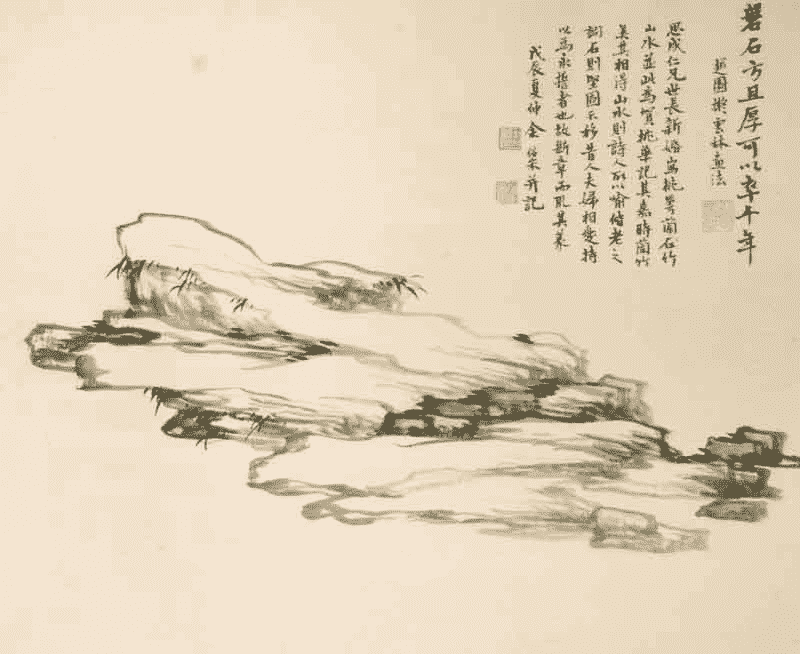 磐石方且厚可以卒千年
越園擬雲林畫法
思成仁兄世長新婚寫桃蘭石竹
山水並此為賀桃華記其嘉時蘭竹
美其相得山水則詩人所以喻偕老之
詞石則堅固不移昔人夫婦相愛持
以為永誓者也故斷章而取其義
戊辰夏仲余紹宋并記